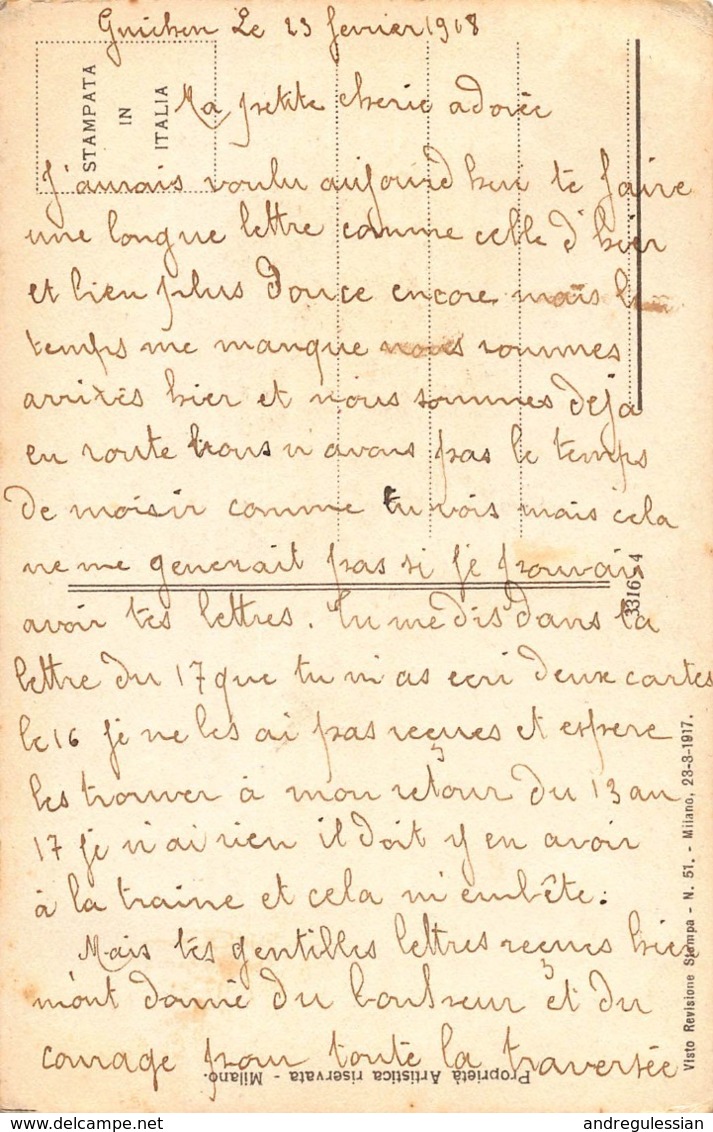 Le 23 fevrier 1918
STAMPATA
IN
ITALIA
Ma petite cherie adorée
J'aurais voulu aujourd'hui te faire
une longue lettre comme celle d'hier
et bien plus douce encore mais le
temps me manque nous sommes
arrivés hier et nous sommes deja
en route nous n'avons pas le temps
de moisir comme tu vois mais cela
ne me generait pas si je pouvais
avoir tes lettres. Tu me dis dans ta
lettre du 17 que tu m'as ecri deux cartes
le 16 je ne les ai pas reçues et espere
les trouver à mon retour du 13 au
17 je n'ai rien il doit y en avoir
à la traine et cela m'embête.
Mais tes gentilles lettres reçues hier
m'ont donné du bonheur et du
courage pour toute la traversée
33161-4
Visto Revisione Stampa - N. 51. - Milano, 23-3-1917.
Proprietà Artistica riservata - Milano.
andregulessian